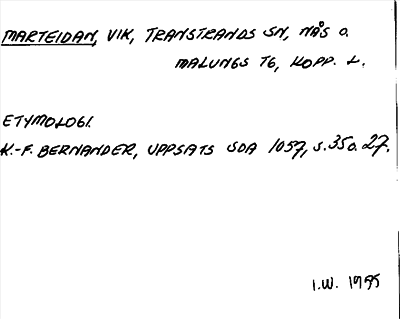 MARTEIDAN, VIK, TRANSTRANDS SN, NÅS O.
MALUNGS TG, KOPP. L.
ETYMOLOGI.
K.-F. BERNANDER, UPPSATS SOA 1057, S. 35 O. 27.
I.W. 1995